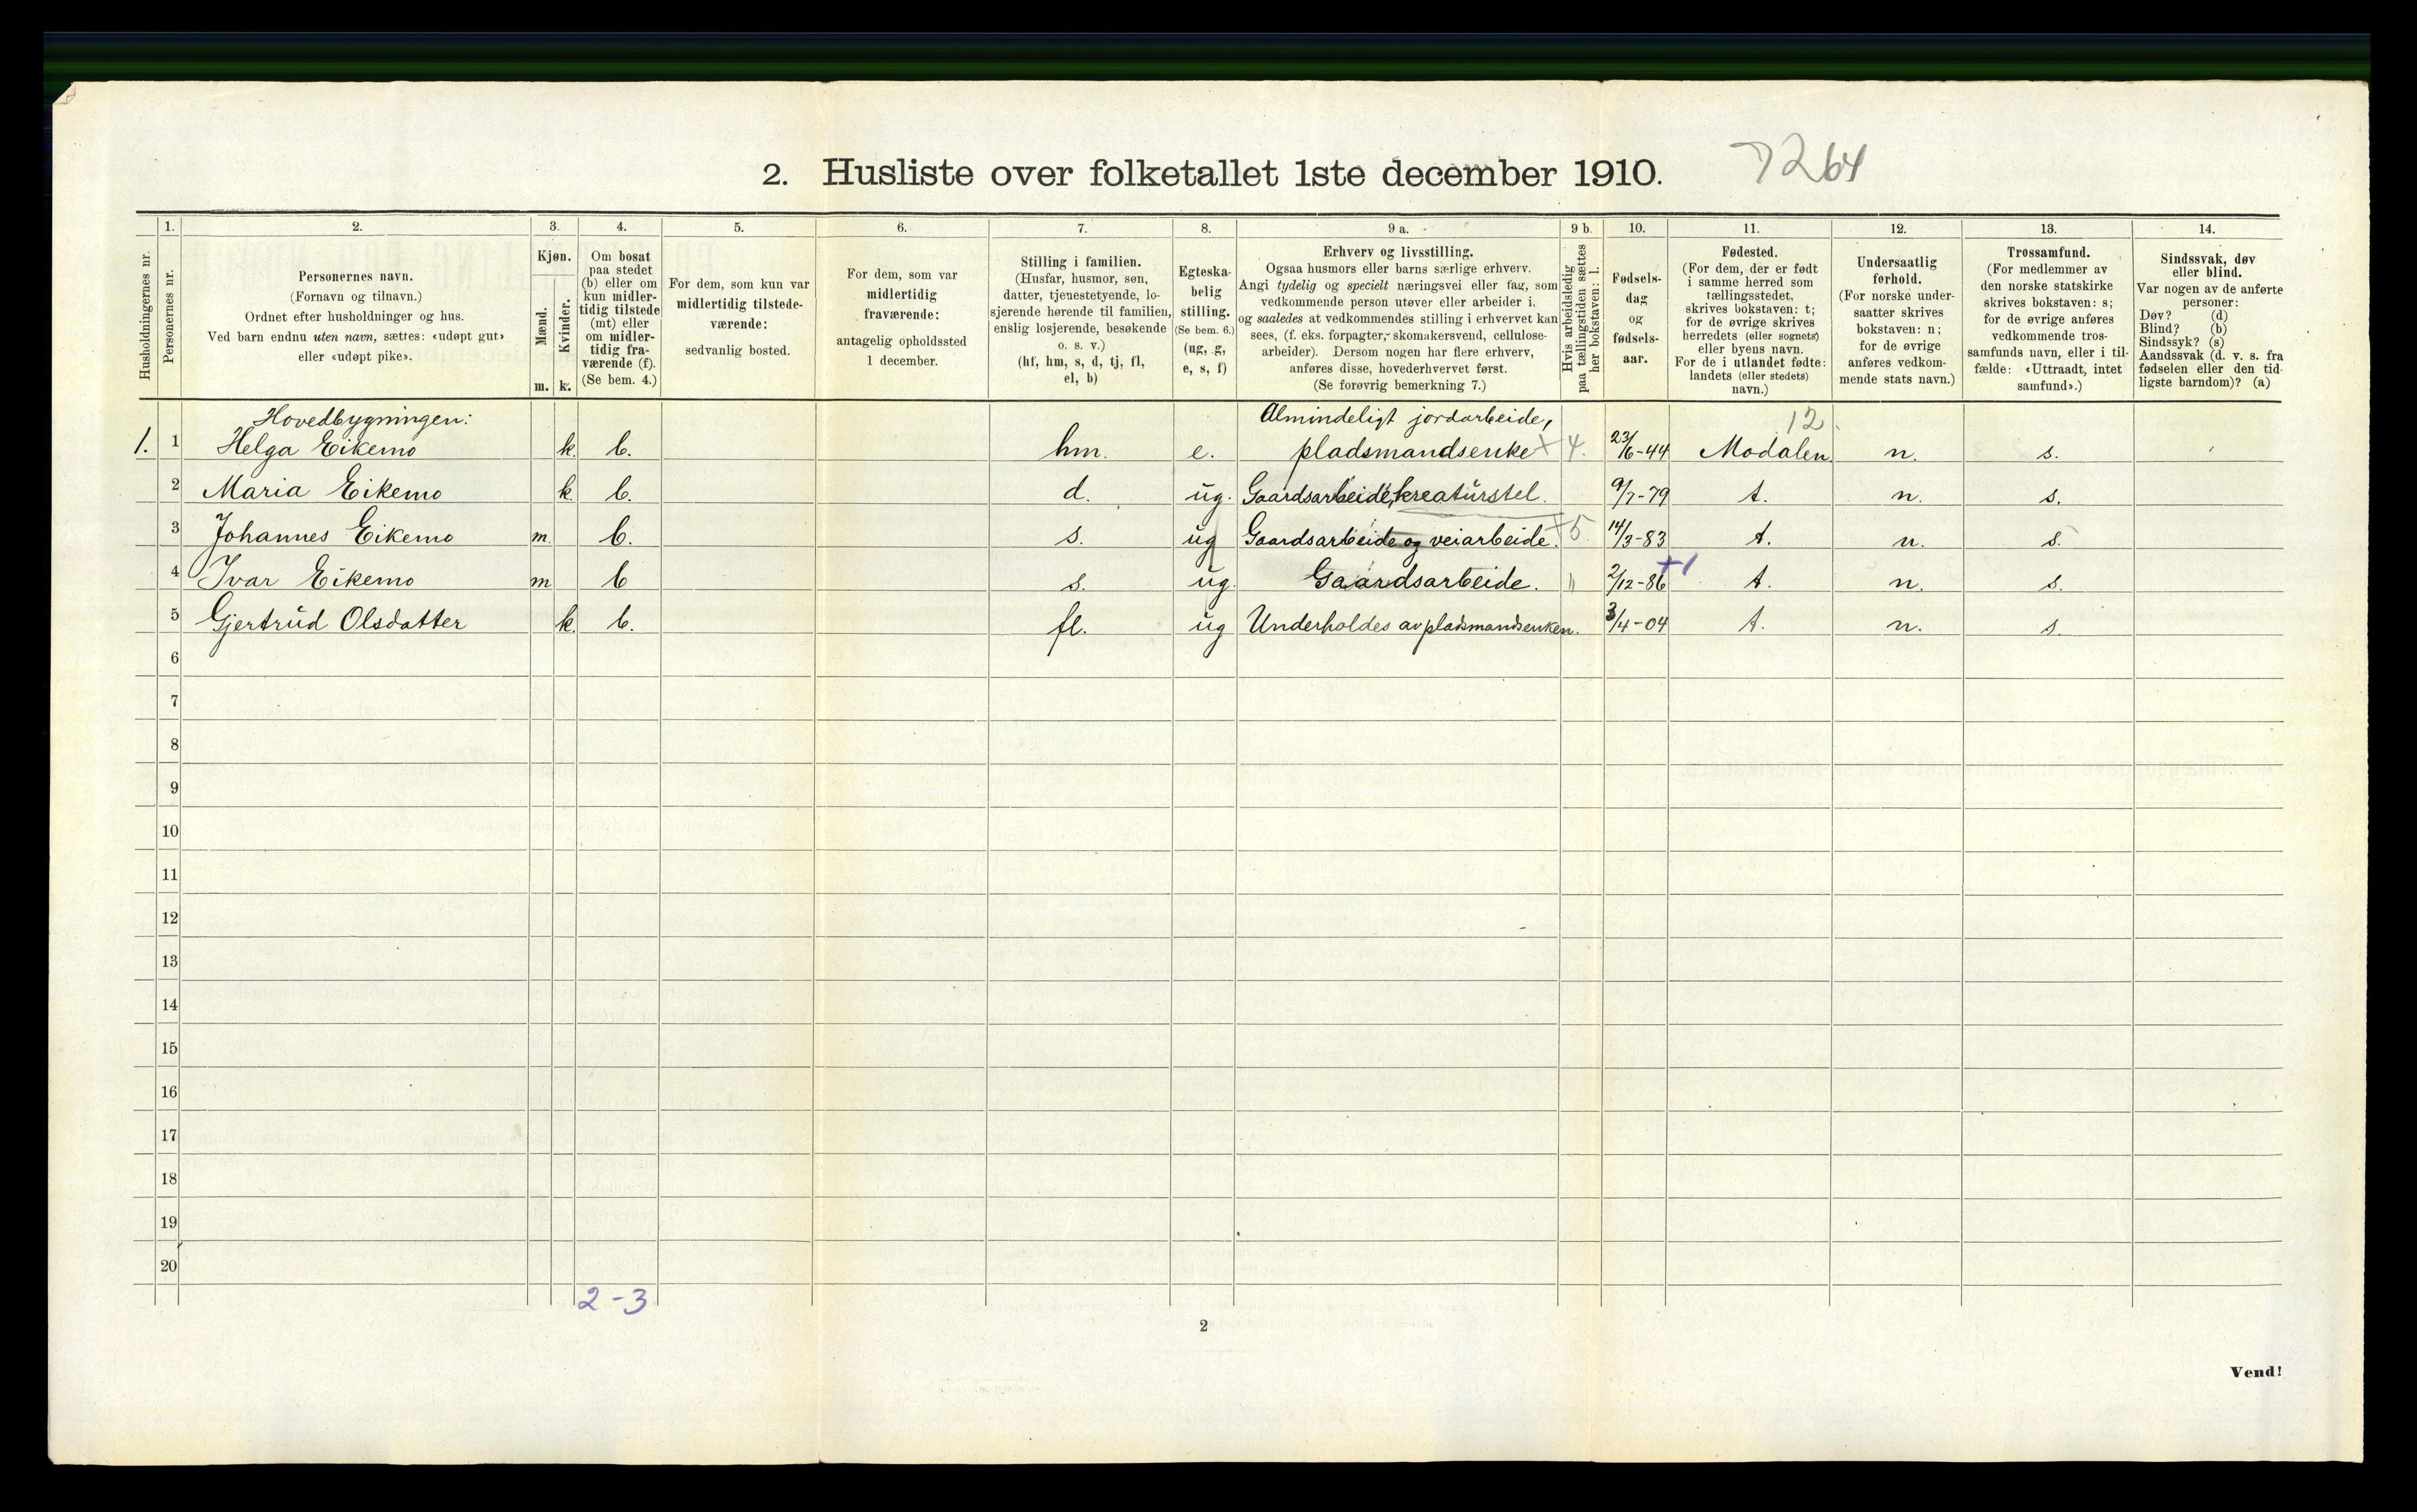 2. Husliste over folketallet 1ste december 1910. 7264
1. 2. 3. 4. 5. 6. 7. 8. 9 a. 9 b. 10. 11. 12. 13. 14.
Husholdningernes nr.
Personernes nr.
Personernes navn.
(Fornavn og tilnavn.)
Ordnet efter husholdninger og hus.
Ved barn endnu uten navn, sættes: «udøpt gut»
eller «udøpt pike».
Kjøn.
Mænd.
m.
Kvinder.
k.
Om bosat
paa stedet
(b) eller om
kun midler-
tidig tilstede
(mt) eller
om midler-
tidig fra-
værende (f).
(Se bem. 4.)
For dem, som kun var
midlertidig tilstede-
værende:
sedvanlig bosted.
For dem, som var
midlertidig
fraværende:
antagelig opholdssted
1 december.
Stilling i familien.
(Husfar, husmor, søn,
datter, tjenestetyende, lo-
sjerende hørende til familien,
enslig losjerende, besøkende
o. s. v.)
(hf, hm, s, d, tj, fl,
el, b)
Egteska-
belig
stilling.
(Se bem. 6.)
(ug, g,
e, s, f)
Erhverv og livsstilling.
Ogsaa husmors eller barns særlige erhverv.
Angi tydelig og specielt næringsvei eller fag, som
vedkommende person utøver eller arbeider i,
og saaledes at vedkommendes stilling i erhvervet kan
sees, (f. eks. forpagter, skomakersvend, cellulose-
arbeider). Dersom nogen har flere erhverv,
anføres disse, hovederhvervet først.
(Se forøvrig bemerkning 7.)
Hvis arbeidsledig
paa tællingstiden sættes
her bokstaven: l.
Fødsels-
dag
og
fødsels-
aar.
Fødested.
(For dem, der er født
i samme herred som
tællingsstedet,
skrives bokstaven: t;
for de øvrige skrives
herredets (eller sognets)
eller byens navn.
For de i utlandet fødte:
landets (eller stedets)
navn.)
Undersaatlig
forhold.
(For norske under-
saatter skrives
bokstaven: n;
for de øvrige
anføres vedkom-
mende stats navn.)
Trossamfund.
(For medlemmer av
den norske statskirke
skrives bokstaven: s;
for de øvrige anføres
vedkommende tros-
samfunds navn, eller i til-
fælde: «Uttraadt, intet
samfund».)
Sindssvak, døv
eller blind.
Var nogen av de anførte
personer:
Døv? (d)
Blind? (b)
Sindssyk? (s)
Aandssvak (d. v. s. fra
fødselen eller den tid-
ligste barndom)? (a)
Hovedbygningen: Almindeligt jordarbeide, 12.
1. 1 Helga Eikemo k. b. hm. e. pladsmandsenke + 4. 23/6-44 Modalen. n. s.
2 Maria Eikemo k. b. d. ug. Gaardsarbeide, kreaturstel. 9/7-79 t. n. s.
3 Johannes Eikemo m. b. s. ug Gaardsarbeide og veiarbeide. +5 14/3-83 t. n. s.
4 Ivar Eikemo m b s. ug. Gaardsarbeide. " 2/12-86 +1 t. n. s.
5 Gjertrud Olsdatter k. b. fl. ug Underholdes av pladsmandsenken. 3/4-04 t. n. s.
6
7
8
9
10
11
12
13
14
15
16
17
18
19
20
2-3
2
Vend!